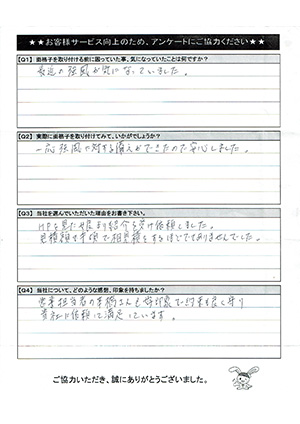 ★★お客様サービス向上のため、アンケートにご協力ください★★
【Q1】面格子を取り付ける前に困っていた事、気になっていたことは何ですか？
最近の強風が気になっていました。
【Q2】実際に面格子を取付けてみて、いかがでしょうか？
一応強風に対する備えができたので安心しました。
【Q3】当社を選んでいただいた理由をお書き下さい。
HPを見た娘より紹介を受け依頼しました。
見積額も手頃で相見積をするほどでもありませんでした。
【Q4】当社について、どのような感想、印象を持ちましたか？
営業担当者の さんも好印象で約束も良く守り
貴社に依頼して満足しています。
ご協力いただき、誠にありがとうございました。